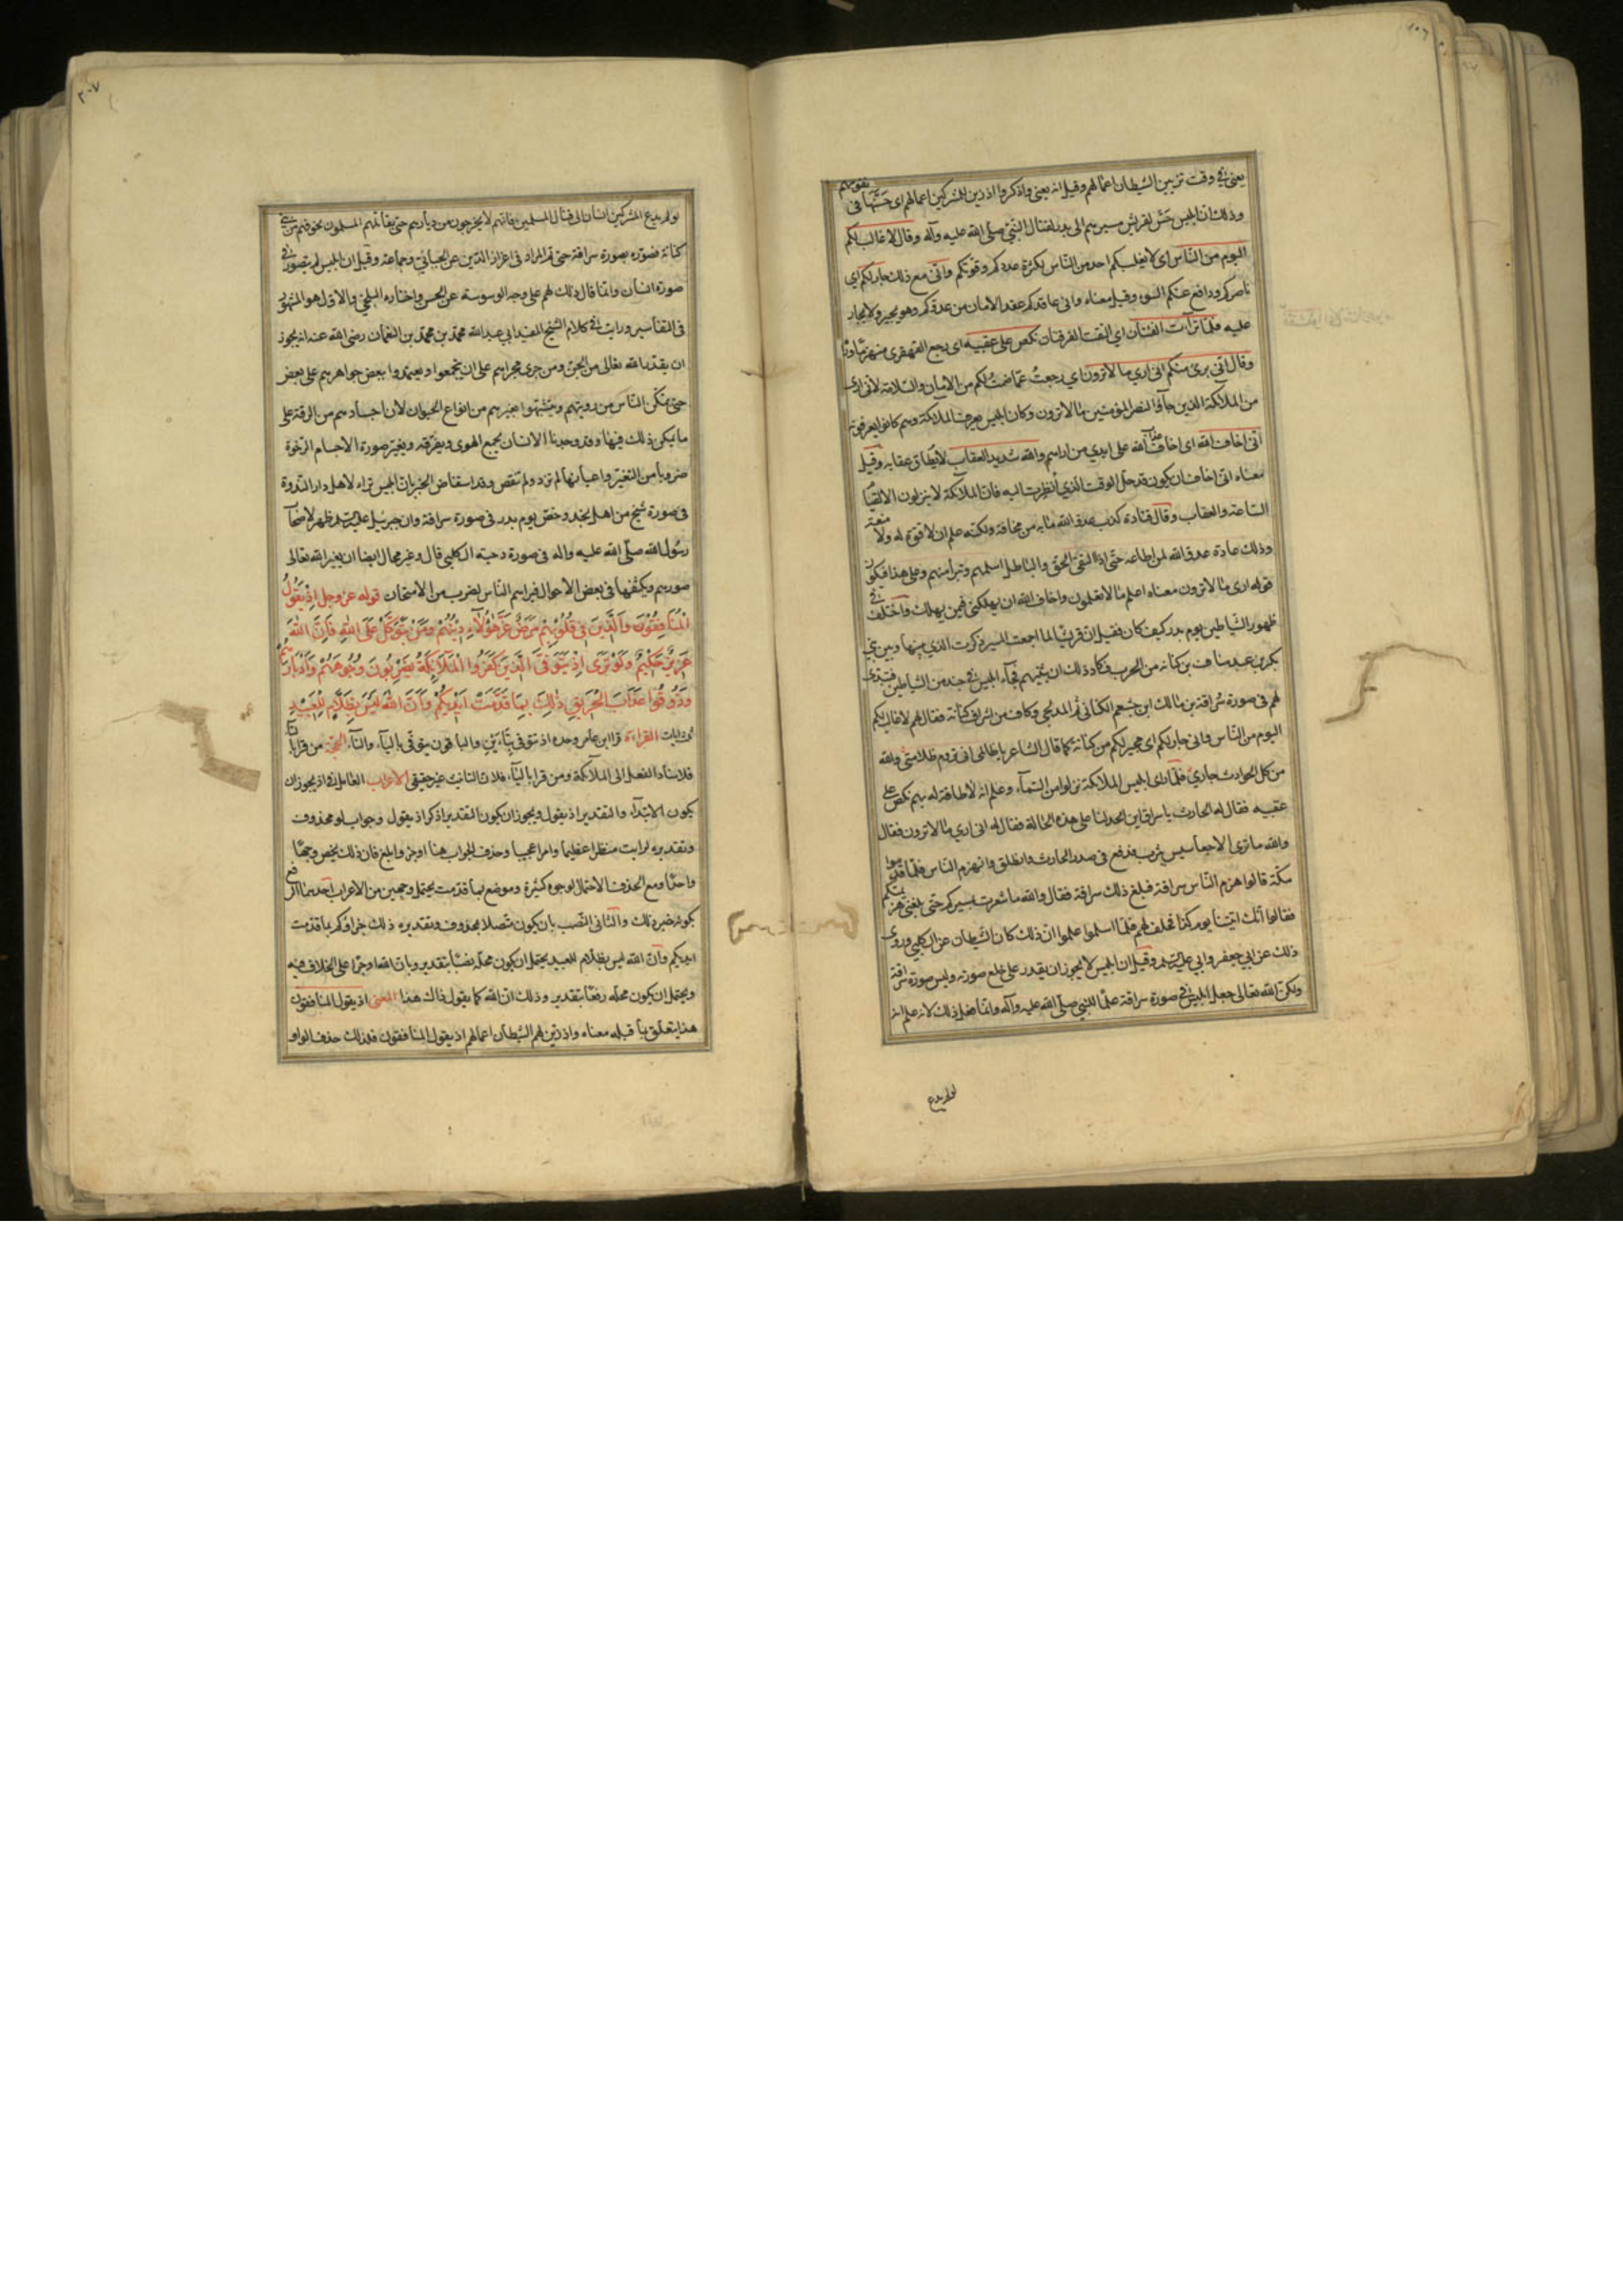 يعنى فى وقت تزيين الشيطان اعمالهم وقيل انه يعنى واذكروا اذ زين للمشركين اعمالهم اى حسّنها فى نفوسهم
وذلك ان ابليس حسّن لقريش مسيرهم الى بدر لقتال النبىّ صلى الله عليه وآله وقال لا غالب لكم
اليوم من الناس اى لا يغلبكم احد من الناس لكثرة عددكم وقوتكم وانى مع ذلك جار لكم اى
ناصر لكم ودافع عنكم السوء وقيل معناه وانى عاقد لكم عقد الامان من عدوّكم وهو يجير ولا يجار
عليه فلمّا تراءت الفئتان اى التقت الفرقتان نكص على عقبيه اى رجع القهقرى منهزما وراءه
وقال انى برىء منكم انى ارى ما لا ترون اى رجعت عمّا ضمنت لكم من الامان والسلامة لانى ارى
من الملائكة الذين جاؤا لنصر المؤمنين ما لا ترون وكان ابليس يعرف الملائكة وهم كانوا يعرفونه
انى اخاف الله اى اخاف عذاب الله على ايدى من اراهم والله شديد العقاب لا يطاق عقابه وقيل
معناه انى اخاف ان يكون قد حل الوقت الذى انظرت اليه فان الملائكة لا ينزلون الا لقيام
الساعة والعقاب وقال قتادة كذب عدو الله ما به من مخافة ولكنه علم ان لا قوة له ولا منعة
وذلك عادة عدو الله لمن اطاعه حتى اذا التقى الحق والباطل اسلمهم وتبرا منهم وعلى هذا فيكون
قوله ارى ما لا ترون معناه اعلم ما لا تعلمون واخاف الله ان يهلكنى فيمن يهلك واختلف فى
ظهور الشياطين يوم بدر كيف كان فقيل ان قريشا لما اجمعت المسير ذكرت الذى بينها وبين بنى
بكر بن عبد مناف بن كنانة من الحرب فكاد ذلك ان يثنيهم فجاء ابليس فى جند من الشياطين فتبدى
لهم فى صورة سراقة بن مالك ابن جشعم الكنانى ثم المدلجى وكان من اشراف كنانة فقال لهم لا غالب لكم
اليوم من الناس وانى جار لكم اى مجير لكم من كنانة كما قال الشاعر يا ظالمى انى تروم ظلامتى والله
من كل الحوادث جارى فلما راى ابليس الملائكة نزلوا من السماء وعلم انه لا طاقة له بهم نكص على
عقبيه فقال له الحارث يا سراق اين اتخذلنا على هذه الحالة فقال له انى ارى ما لا ترون فقال
والله ما نرى الا جعاسيس يثرب فدفع فى صدر الحارث وانطلق وانهزم الناس فلما قدموا
مكة قالوا هزم الناس سراقة فبلغ ذلك سراقة فقال والله ما شعرت بمسيركم حتى بلغنى هزيمتكم
فقالوا انك اتيتنا يوم كذا فحلف لهم فلما اسلموا علموا ان ذلك كان الشيطان عن الكلبى وروى
ذلك عن ابى جعفر وابى عبد الله وقيل ان ابليس لا يجوز ان يقدر على خلع صورته ولبس صورة سراقة
ولكن الله تعالى جعل ابليس فى صورة سراقة علما للنبى صلى الله عليه وآله وانما فعل ذلك لانه علم انه
لو لم يدع
لو لم يدع المشركين انسان الى قتال المسلمين فانهم لا يخرجون من ديارهم حتى يقاتلهم المسلمون لخوفهم من بنى
كنانة فصوّره بصورة سراقة حتى تم المراد فى اعزاز الدين عن الجبائى وجماعة وقيل ان ابليس لم يتصور فى
صورة انسان وانما قال ذلك لهم على وجه الوسوسة عن الحسن واختاره البلخى والاول هو المشهور
فى التفاسير ورايت فى كلام الشيخ المفيد ابى عبد الله محمد بن محمد بن النعمان رضى الله عنه انه يجوز
ان يقدر الله تعالى من الجن ومن جرى مجراهم على ان يجتمعوا ويعتمدوا ببعض جواهرهم على بعض
حتى يتمكن الناس من رويتهم ويتشبهوا بغيرهم من انواع الحيوان لان اجسادهم من الرقة على
ما يمكن ذلك فيها وقد وجدنا الانسان يجمع الهوى ويفرقه ويغير صورة الاجسام الرخوة
ضروبا من التغيير واعيانها لم تزد ولم تنقص وقد استفاض الخبر بان ابليس تراءى لاهل دار الندوة
فى صورة شيخ من اهل نجد وحضر يوم بدر فى صورة سراقة وان جبرئيل عليه السلم ظهر لاصحاب
رسول الله صلى الله عليه واله فى صورة دحية الكلبى قال وغير محال ايضا ان يغير الله تعالى
صورهم ويكثفها فى بعض الاحوال فيراهم الناس لضرب من الامتحان قوله عز وجل اِذْ يَقُولُ
الْمُنَافِقُونَ وَالَّذِينَ فِى قُلُوبِهِمْ مَرَضٌ غَرَّ هٰؤُلَاءِ دِينُهُمْ وَمَنْ يَتَوَكَّلْ عَلَى اللهِ فَاِنَّ اللهَ
عَزِيزٌ حَكِيمٌ وَلَوْ تَرَى اِذْ يَتَوَفَّى الَّذِينَ كَفَرُوا الْمَلَائِكَةُ يَضْرِبُونَ وُجُوهَهُمْ وَاَدْبَارَهُمْ
وَذُوقُوا عَذَابَ الْحَرِيقِ ذٰلِكَ بِمَا قَدَّمَتْ اَيْدِيكُمْ وَاَنَّ اللهَ لَيْسَ بِظَلَّامٍ لِلْعَبِيدِ
ثلث ايات القراءة قرا ابن عامر وحده اذ تتوفى بتاءين والباقون يتوفى بالياء والتاء الحجة من قرا بالتاء
فلاسناد الفعل الى الملائكة ومن قرا بالياء فلان التانيث غير حقيقى الاعراب العامل فى اذ يجوز ان
يكون الابتداء والتقدير اذ يقول ويجوز ان يكون التقدير اذكر اذ يقول وجواب لو محذوف
وتقديره لرايت منظرا عظيما وامرا عجيبا وحذف الجواب هنا اوجز وابلغ فان ذلك يخص وجها
واحدا ومع الحذف الاحتمال لوجوه كثيرة وموضع بما قدمت يحتمل وجهين من الاعراب احدهما الرفع
بكونه خبر ذلك والثانى النصب بان يكون متصلا بمحذوف وتقديره ذلك جزاؤكم بما قدمت
ايديكم وان الله ليس بظلام للعبيد يحتمل ان يكون محله نصبا بتقدير وبان الله او جرا على الخلاف فيه
ويحتمل ان يكون محله رفعا بتقدير وذلك ان الله كما يقول ذلك هذا المعنى اذ يقول المنافقون
هذا يتعلق بما قبله معناه واذ زين لهم الشيطان اعمالهم اذ يقول المنافقون فلذلك حذف الواو
٢٠٧